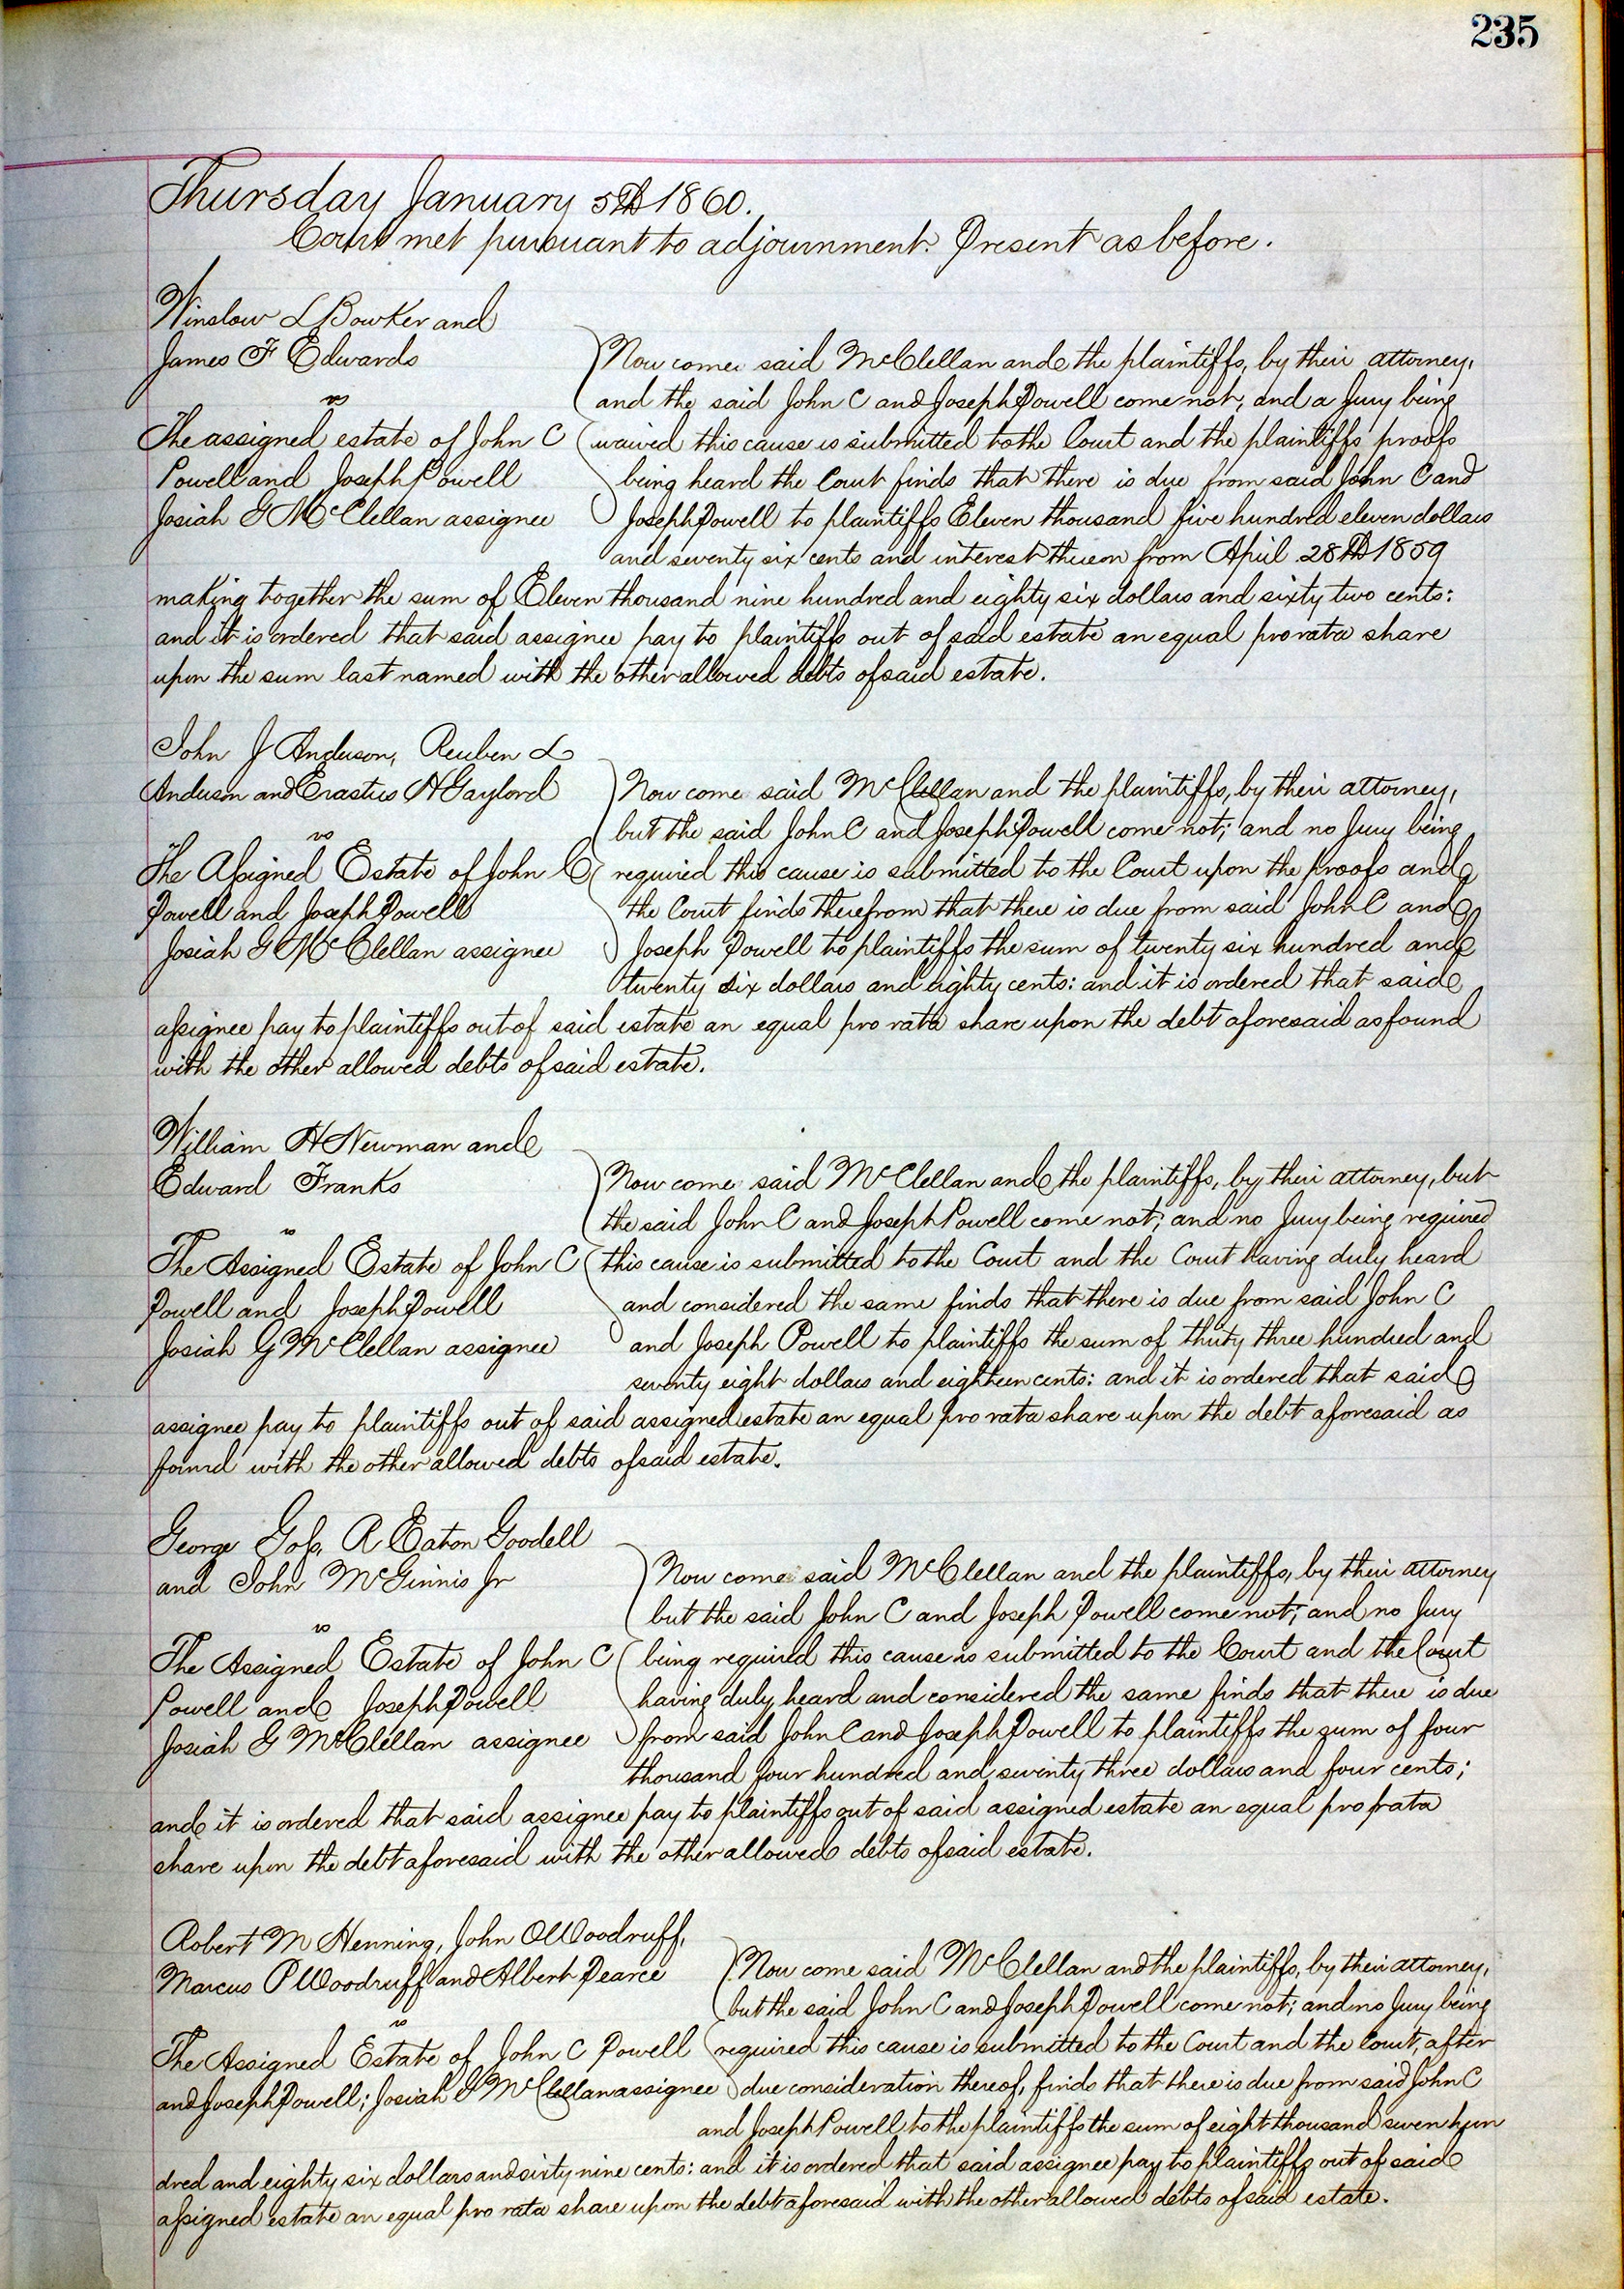 235
Thursday January 5th 1860.
Court met pursuant to adjournment. Present as before.
Winslow L Bowker and
James F Edwards
vs
The assigned estate of John C
Powell and Joseph Powell
Josiah G McClellan assignee
Now come said McClellan and the plaintiffs, by their attorney,
and the said John C and Joseph Powell come not; and a Jury being
waived this cause is submitted to the Court and the plaintiffs proofs
being heard the Court finds that there is due from said John C and
Joseph Powell to plaintiffs Eleven thousand five hundred eleven dollars
and seventy six cents and interest thereon from April 28th 1859
making together the sum of Eleven thousand nine hundred and eighty six dollars and sixty two cents:
and it is ordered that said assignee pay to plaintiffs out of said estate an equal pro rata share
upon the sum last named with the other allowed debts of said estate.
John J Anderson, Reuben L
Anderson and Erastus H Gaylord
vs
The Assigned Estate of John C
Powell and Joseph Powell
Josiah G McClellan assignee
Now come said McClellan and the plaintiffs, by their attorney,
but the said John C and Joseph Powell come not; and no Jury being
required this cause is submitted to the Court upon the proofs and
the Court finds therefrom that there is due from said John C and
Joseph Powell to plaintiffs the sum of twenty six hundred and
twenty six dollars and eighty cents: and it is ordered that said
assignee pay to plaintiffs out of said estate an equal pro rata share upon the debt aforesaid as found
with the other allowed debts of said estate.
William H Newman and
Edward Franks
vs
The Assigned Estate of John C
Powell and Joseph Powell
Josiah G McClellan assignee
Now come said McClellan and the plaintiffs, by their attorney, but
the said John C and Joseph Powell come not; and no Jury being required
this cause is submitted to the Court and the Court having duly heard
and considered the same finds that there is due from said John C
and Joseph Powell to plaintiffs the sum of thirty three hundred and
seventy eight dollars and eighteen cents: and it is ordered that said
assignee pay to plaintiffs out of said assigned estate an equal pro rata share upon the debt aforesaid as
found with the other allowed debts of said estate.
George Goss, R Eaton Goodell
and John McGinnis Jr
vs
The Assigned Estate of John C
Powell and Joseph Powell
Josiah G McClellan assignee
Now come said McClellan and the plaintiffs, by their attorney
but the said John C and Joseph Powell come not; and no Jury
being required this cause is submitted to the Court and the Court
having duly heard and considered the same finds that there is due
from said John C and Joseph Powell to plaintiffs the sum of four
thousand four hundred and seventy three dollars and four cents;
and it is ordered that said assignee pay to plaintiffs out of said assigned estate an equal pro rata
share upon the debt aforesaid with the other allowed debts of said estate.
Robert M Henning, John O Woodruff,
Marcus P Woodruff and Albert Pearce
vs
The Assigned Estate of John C Powell
and Joseph Powell; Josiah G McClellan assignee
Now come said McClellan and the plaintiffs, by their attorney,
but the said John C and Joseph Powell come not; and no Jury being
required this cause is submitted to the Court and the Court, after
due consideration thereof, finds that there is due from said John C
and Joseph Powell to the plaintiffs the sum of eight thousand seven hun
dred and eighty six dollars and sixty nine cents: and it is ordered that said assignee pay to plaintiffs out of said
assigned estate an equal pro rata share upon the debt aforesaid with the other allowed debts of said estate.